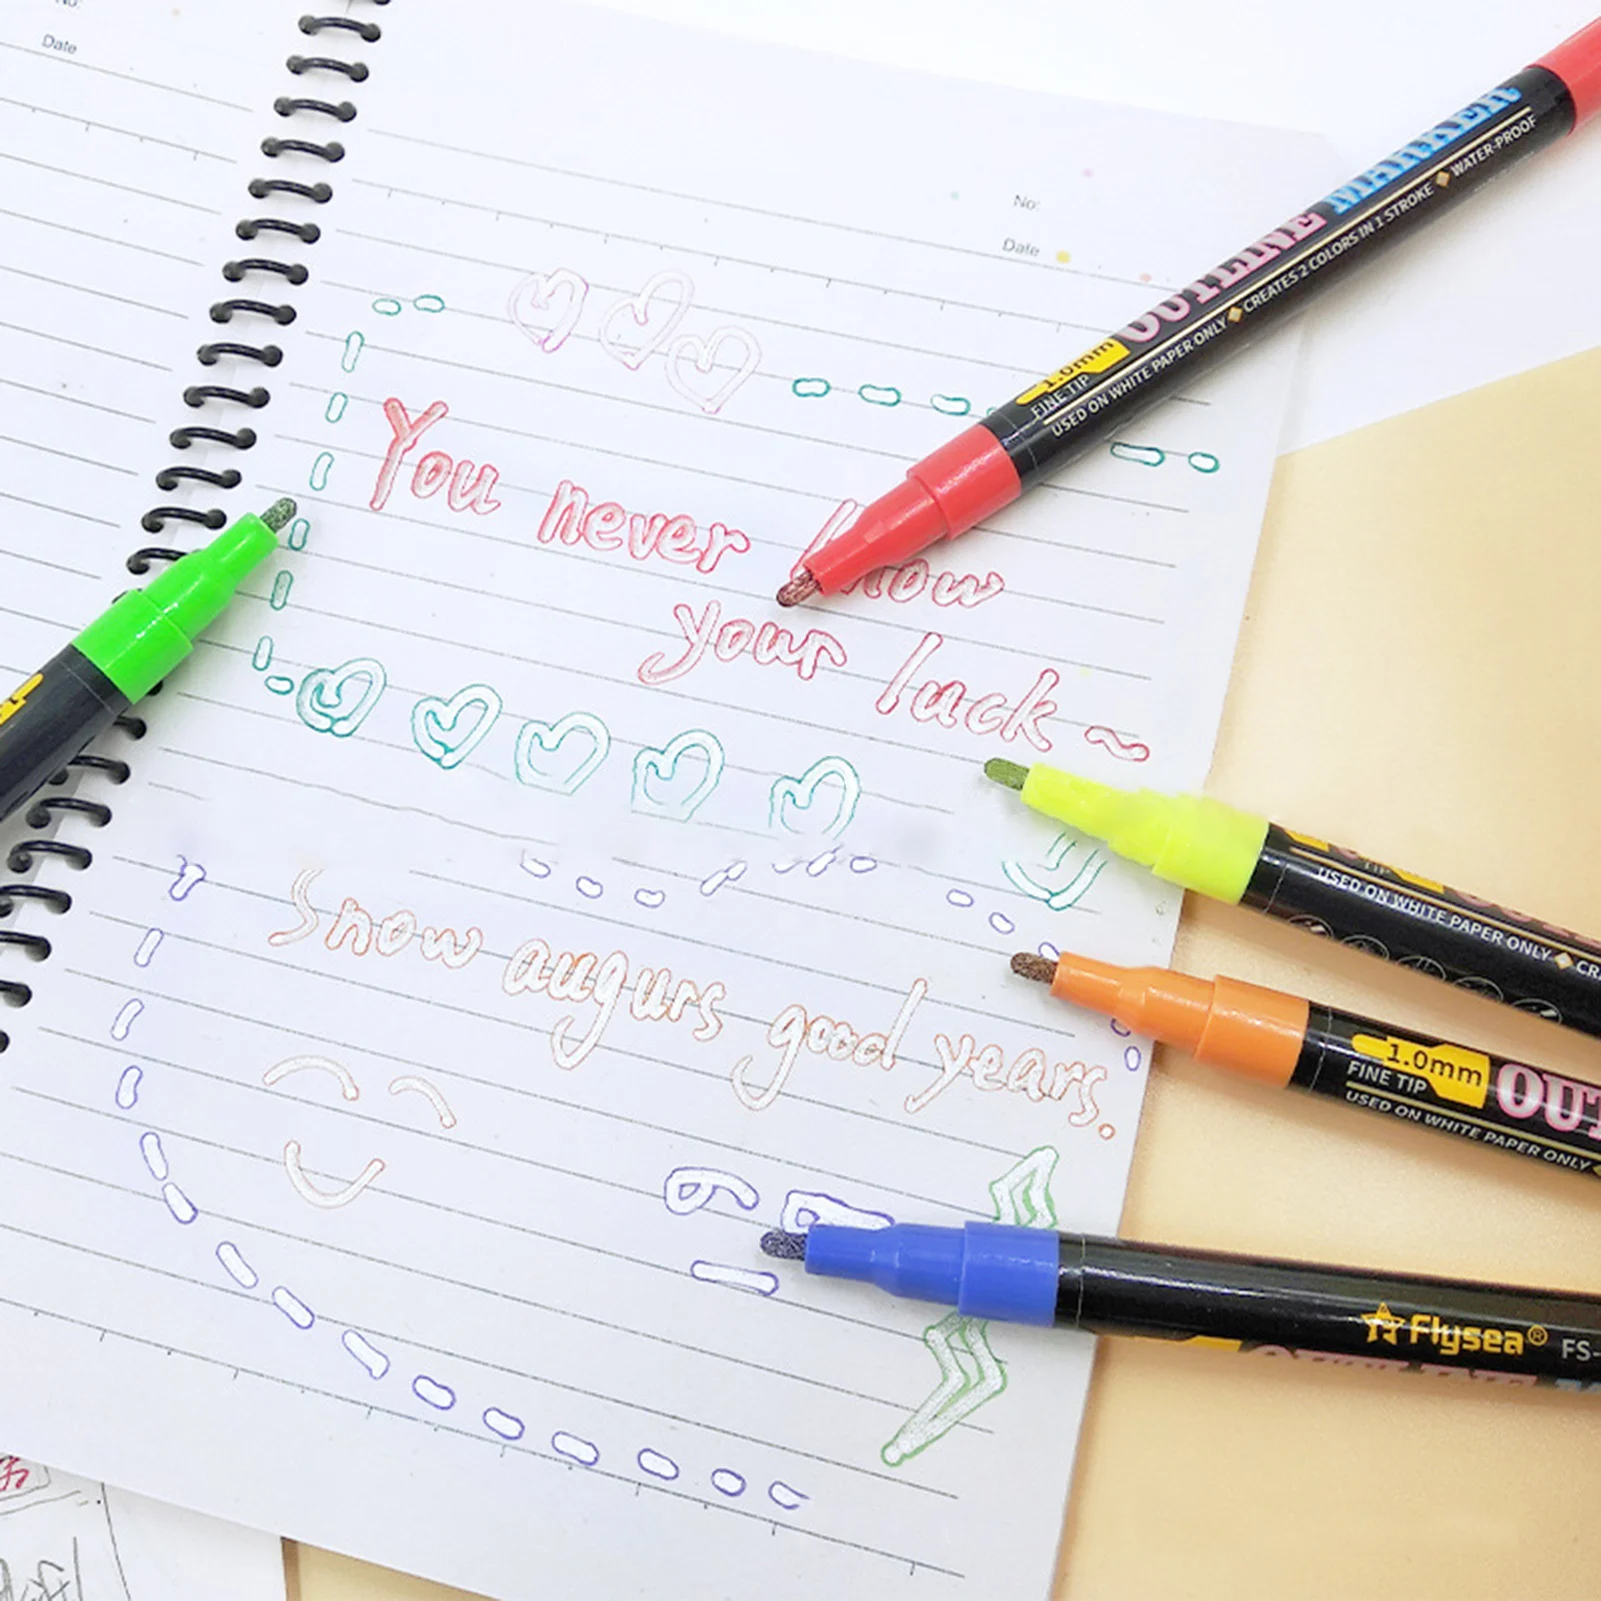 No:
Date
No:
Date
OUTLINE MARKER
1.0mm
FINE TIP
USED ON WHITE PAPER ONLY ◆ CREATES 2 COLORS IN 1 STROKE ◆ WATER-PROOF
You never know
your luck~
Snow augurs good years.
TIP
USED ON WHITE PAPER ONLY ◆ CR
1.0mm
FINE TIP
OUT
USED ON WHITE PAPER ONLY
Flysea® FS-